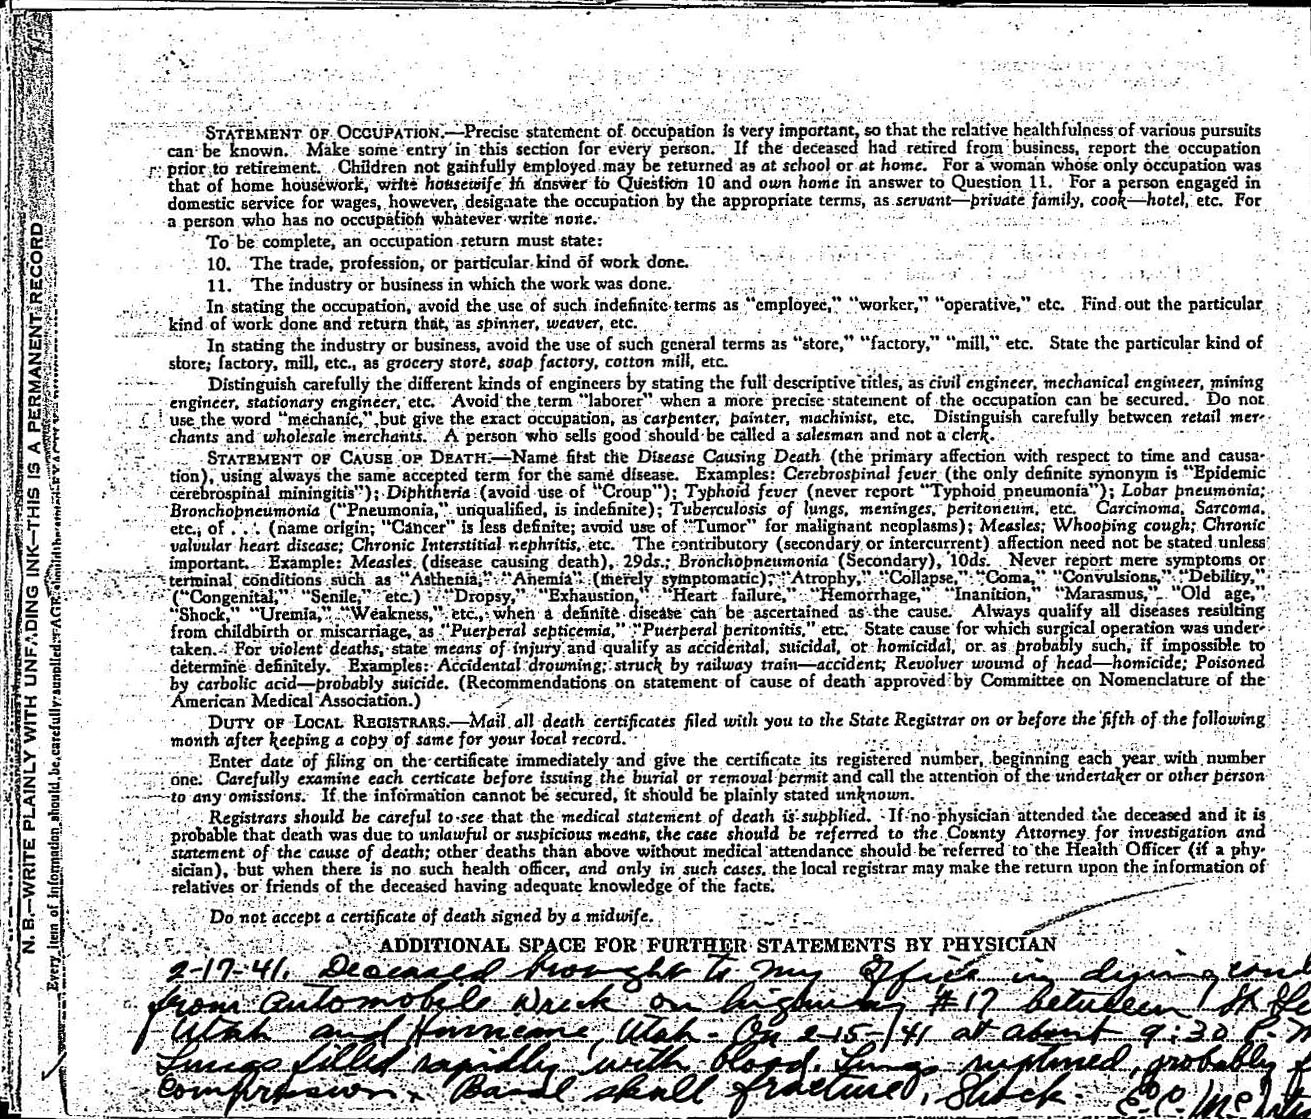 STATEMENT OF OCCUPATION.—Precise statement of occupation is very important, so that the relative healthfulness of various pursuits
can be known. Make some entry in this section for every person. If the deceased had retired from business, report the occupation
prior to retirement. Children not gainfully employed may be returned as at school or at home. For a woman whose only occupation was
that of home housework, write housewife in answer to Question 10 and own home in answer to Question 11. For a person engaged in
domestic service for wages, however, designate the occupation by the appropriate terms, as servant—private family, cook—hotel, etc. For
a person who has no occupation whatever write none.
To be complete, an occupation return must state:
10. The trade, profession, or particular kind of work done.
11. The industry or business in which the work was done.
In stating the occupation, avoid the use of such indefinite terms as "employee," "worker," "operative," etc. Find out the particular
kind of work done and return that, as spinner, weaver, etc.
In stating the industry or business, avoid the use of such general terms as "store," "factory," "mill," etc. State the particular kind of
store; factory, mill, etc., as grocery store, soap factory, cotton mill, etc.
Distinguish carefully the different kinds of engineers by stating the full descriptive titles, as civil engineer, mechanical engineer, mining
engineer, stationary engineer, etc. Avoid the term "laborer" when a more precise statement of the occupation can be secured. Do not
use the word "mechanic," but give the exact occupation, as carpenter, painter, machinist, etc. Distinguish carefully between retail mer-
chants and wholesale merchants. A person who sells good should be called a salesman and not a clerk.
STATEMENT OF CAUSE OF DEATH.—Name first the Disease Causing Death (the primary affection with respect to time and causa-
tion), using always the same accepted term for the same disease. Examples: Cerebrospinal fever (the only definite synonym is "Epidemic
cerebrospinal miningitis"); Diphtheria (avoid use of "Croup"); Typhoid fever (never report "Typhoid pneumonia"); Lobar pneumonia;
Bronchopneumonia ("Pneumonia," unqualified, is indefinite); Tuberculosis of lungs, meninges, peritoneum, etc. Carcinoma, Sarcoma,
etc., of . . . (name origin; "Cancer" is less definite; avoid use of "Tumor" for malignant neoplasms); Measles; Whooping cough; Chronic
valvular heart disease; Chronic Interstitial nephritis, etc. The contributory (secondary or intercurrent) affection need not be stated unless
important. Example: Measles (disease causing death), 29ds.; Bronchopneumonia (Secondary), 10ds. Never report mere symptoms or
terminal conditions such as "Asthenia," "Anemia" (merely symptomatic); "Atrophy," "Collapse," "Coma," "Convulsions," "Debility,"
("Congenital," "Senile," etc.) "Dropsy," "Exhaustion," "Heart failure," "Hemorrhage," "Inanition," "Marasmus," "Old age,"
"Shock," "Uremia," "Weakness," etc., when a definite disease can be ascertained as the cause. Always qualify all diseases resulting
from childbirth or miscarriage, as "Puerperal septicemia," "Puerperal peritonitis," etc. State cause for which surgical operation was under-
taken. For violent deaths, state means of injury and qualify as accidental, suicidal, or homicidal, or as probably such, if impossible to
determine definitely. Examples: Accidental drowning; struck by railway train—accident; Revolver wound of head—homicide; Poisoned
by carbolic acid—probably suicide. (Recommendations on statement of cause of death approved by Committee on Nomenclature of the
American Medical Association.)
DUTY OF LOCAL REGISTRARS.—Mail all death certificates filed with you to the State Registrar on or before the fifth of the following
month after keeping a copy of same for your local record.
Enter date of filing on the certificate immediately and give the certificate its registered number, beginning each year with number
one. Carefully examine each certicate before issuing the burial or removal permit and call the attention of the undertaker or other person
to any omissions. If the information cannot be secured, it should be plainly stated unknown.
Registrars should be careful to see that the medical statement of death is supplied. If no physician attended the deceased and it is
probable that death was due to unlawful or suspicious means, the case should be referred to the County Attorney for investigation and
statement of the cause of death; other deaths than above without medical attendance should be referred to the Health Officer (if a phy-
sician), but when there is no such health officer, and only in such cases, the local registrar may make the return upon the information of
relatives or friends of the deceased having adequate knowledge of the facts.
Do not accept a certificate of death signed by a midwife.
ADDITIONAL SPACE FOR FURTHER STATEMENTS BY PHYSICIAN
2-17-41. Deceased brought to my office in dying cond
from automobile wreck on highway #17 between St Ge
Utah and Hurricane, Utah - On 2-15-41 at about 9:30 P.M
Lungs filled rapidly with blood. Lungs ruptured, probably f
compression. Basal skull fracture, Shock -
N. B.—WRITE PLAINLY WITH UNFADING INK—THIS IS A PERMANENT RECORD
Every item of information should be carefully supplied. AGE